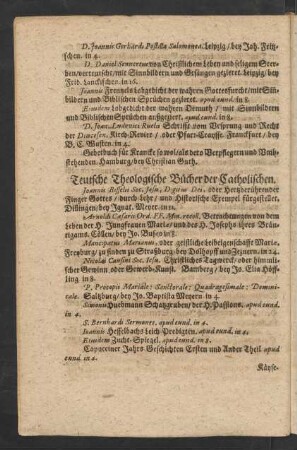 D. Joannis Gerhardi Postilla Salomonea. Leipzig / bey Joh. Fritzschen. in 4.
D. Daniel Sennertus von Christlichem Leben und seligem Sterben / verteutscht / mit Sinnbildern und Gesängen gezieret. Leipzig / bey
Frid. Lanckischen. in 16.
Joannis Frenzels Lobgedicht der wahren Gottesfurcht / mit Sinbildern und Biblischen Sprüchen gezieret. apud eund. in 8.
Ejusdem Lobgedicht der wahren Demuth / mit Sinnbildern
und Biblischen Sprüchen außgeziert. apud eund. in 8.
und Recht
der Dioecesen, Kirch-Revier / oder Pfarr-Creysse. Franckfurt / bey
B. C. Wusten. in 4.
Gebetbuch für Krancke so wol als dero Verpflegern und Umbstehenden. Hamburg / bey Christian Guth.
Teutsche Theologische Bücher der Catholischen.
Joannis Bißelii Soc. Jesu, Digitus Dei, oder Hertzberührender
Finger Gottes / durch Lehr / und Historische Exempel fürgestellet.
Dillingen / bey Ignat. Meyer. in
Arnoldi Caesaris Ord. FF. Min. recoll. Betrachtungen von dem
Leben der H. Jungfrauen Maria / und des H. Josephs ihres Bräutigams. Cöllen / bey Jo. Busæo in 8.
Mancipatus Marianus, oder geistliche Leibeigenschafft Mariæ.
Freyburg / zu finden zu Straßburg / bey Dolhopff und Zeznern. in 24.
Nicolai Caussini Soc. Jesu. Christliches Tagwerck / oder himmlischer Gewinn oder Gewerb-Kunst. Bamberg / bey Jo. Elia Höffling in 8.
P. Procopii Mariale: Sanctorale: Quadragesimale: Dominicale. Saltzburg / bey Jo. Baptista Meyern. in 4.
Huebmann Schatzgruben / der H. Passions. apud eund.
in 4.
S. Bernhardi Sermones, apud eund. in 4.
Joannis Hesselbachs Leich-Predigten. apud eund. in 4.
Ejusdem Zucht-Spiegel. apud eund. in 8.
Capuciner Jahrs-Geschichten Ersten und Ander Theil. apud
eund. in 2.
Käyse-